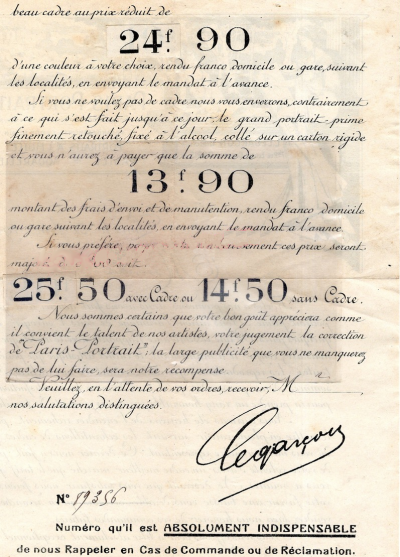 beau cadre au prix réduit de
24f. 90
d'une couleur à votre choix, rendu franco domicile ou gare, suivant
les localités, en envoyant le mandat à l'avance.
Si vous ne voulez pas de cadre nous vous enverrons, contrairement
à ce qui s'est fait jusqu'à ce jour, le grand portrait-prime
finement retouché, fixé à l'alcool, collé sur un carton rigide
et vous n'aurez à payer que la somme de
13f. 90
montant des frais d'envoi et de manutention, rendu franco domicile
ou gare suivant les localités, en envoyant le mandat à l'avance.
Si vous préférez, ces prix seront
25f. 50 avec Cadre ou 14f. 50 sans Cadre.
Nous sommes certains que votre bon goût appréciera comme
il convient le talent de nos artistes, votre jugement la correction
de "Paris-Portrait"; la large publicité que vous ne manquerez
pas de lui faire, sera notre récompense.
Veuillez, en l'attente de vos ordres, recevoir, M
nos salutations distinguées.
Legarçon
N° 89356
Numéro qu'il est ABSOLUMENT INDISPENSABLE
de nous Rappeler en Cas de Commande ou de Réclamation.